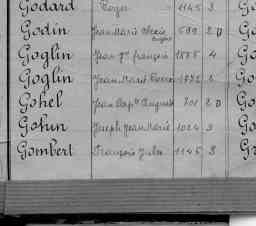 Godard Roger 1145 3 G
Godin Jean Marie 599 2 D G
Goglin Jean français 1555 4 G
Goglin Jean Marie 1772 2 G
Gohel Jean Bapt August 701 2 D G
Gohun Joseph Jean Marie 1024 3 G
Gombert François Jules 1145 3 G